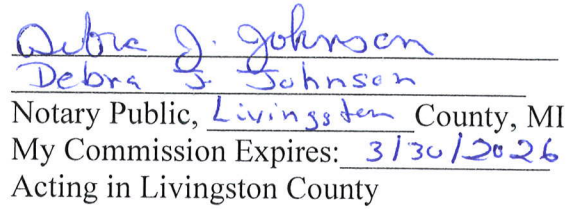 Debra J. Johnson
Debra J. Johnson
Notary Public, Livingston County, MI
My Commission Expires: 3/30/2026
Acting in Livingston County